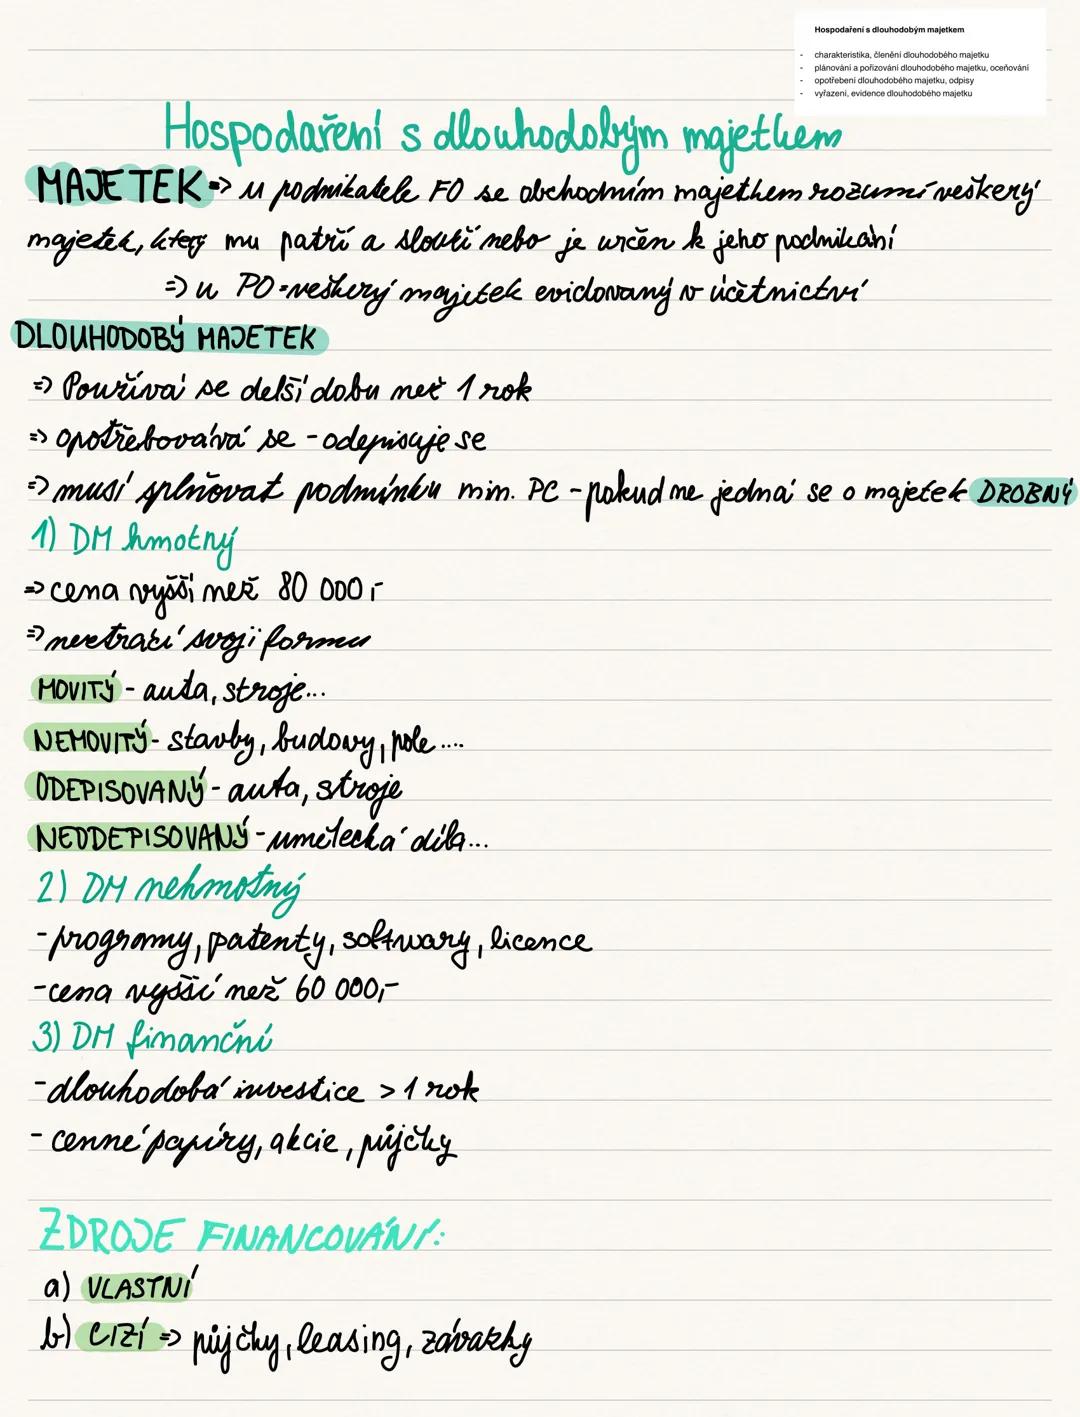 Hospodaření s dlouhodobým majetkem
- charakteristika, členění dlouhodobého majetku
- plánování a pořizování dlouhodobého majetku, oceňování
- opotřebení dlouhodobého majetku, odpisy
- vyřazení, evidence dlouhodobého majetku
Hospodaření s dlouhodobým majetkem
MAJETEK => u podnikatele FO se obchodním majetkem rozumí veškerý
majetek, který mu patří a slouží nebo je určen k jeho podnikání
=> u PO - veškerý majetek evidovaný v účetnictví
DLOUHODOBÝ MAJETEK
=> Používá se delší dobu než 1 rok
=> opotřebovává se - odepisuje se
=> musí splňovat podmínku min. PC - pokud ne jedná se o majetek DROBNÝ
1) DM hmotný
=> cena vyšší než 80 000,-
=> neztrácí svoji formu
MOVITÝ - auta, stroje...
NEMOVITÝ - stavby, budovy, pole....
ODEPISOVANÝ - auta, stroje
NEODEPISOVANÝ - umělecká díla...
2) DM nehmotný
- programy, patenty, softwary, licence
- cena vyšší než 60 000,-
3) DM finanční
- dlouhodobá investice > 1 rok
- cenné papíry, akcie, půjčky
ZDROJE FINANCOVÁNÍ:
a) VLASTNÍ
b) CIZÍ => půjčky, leasing, závazky